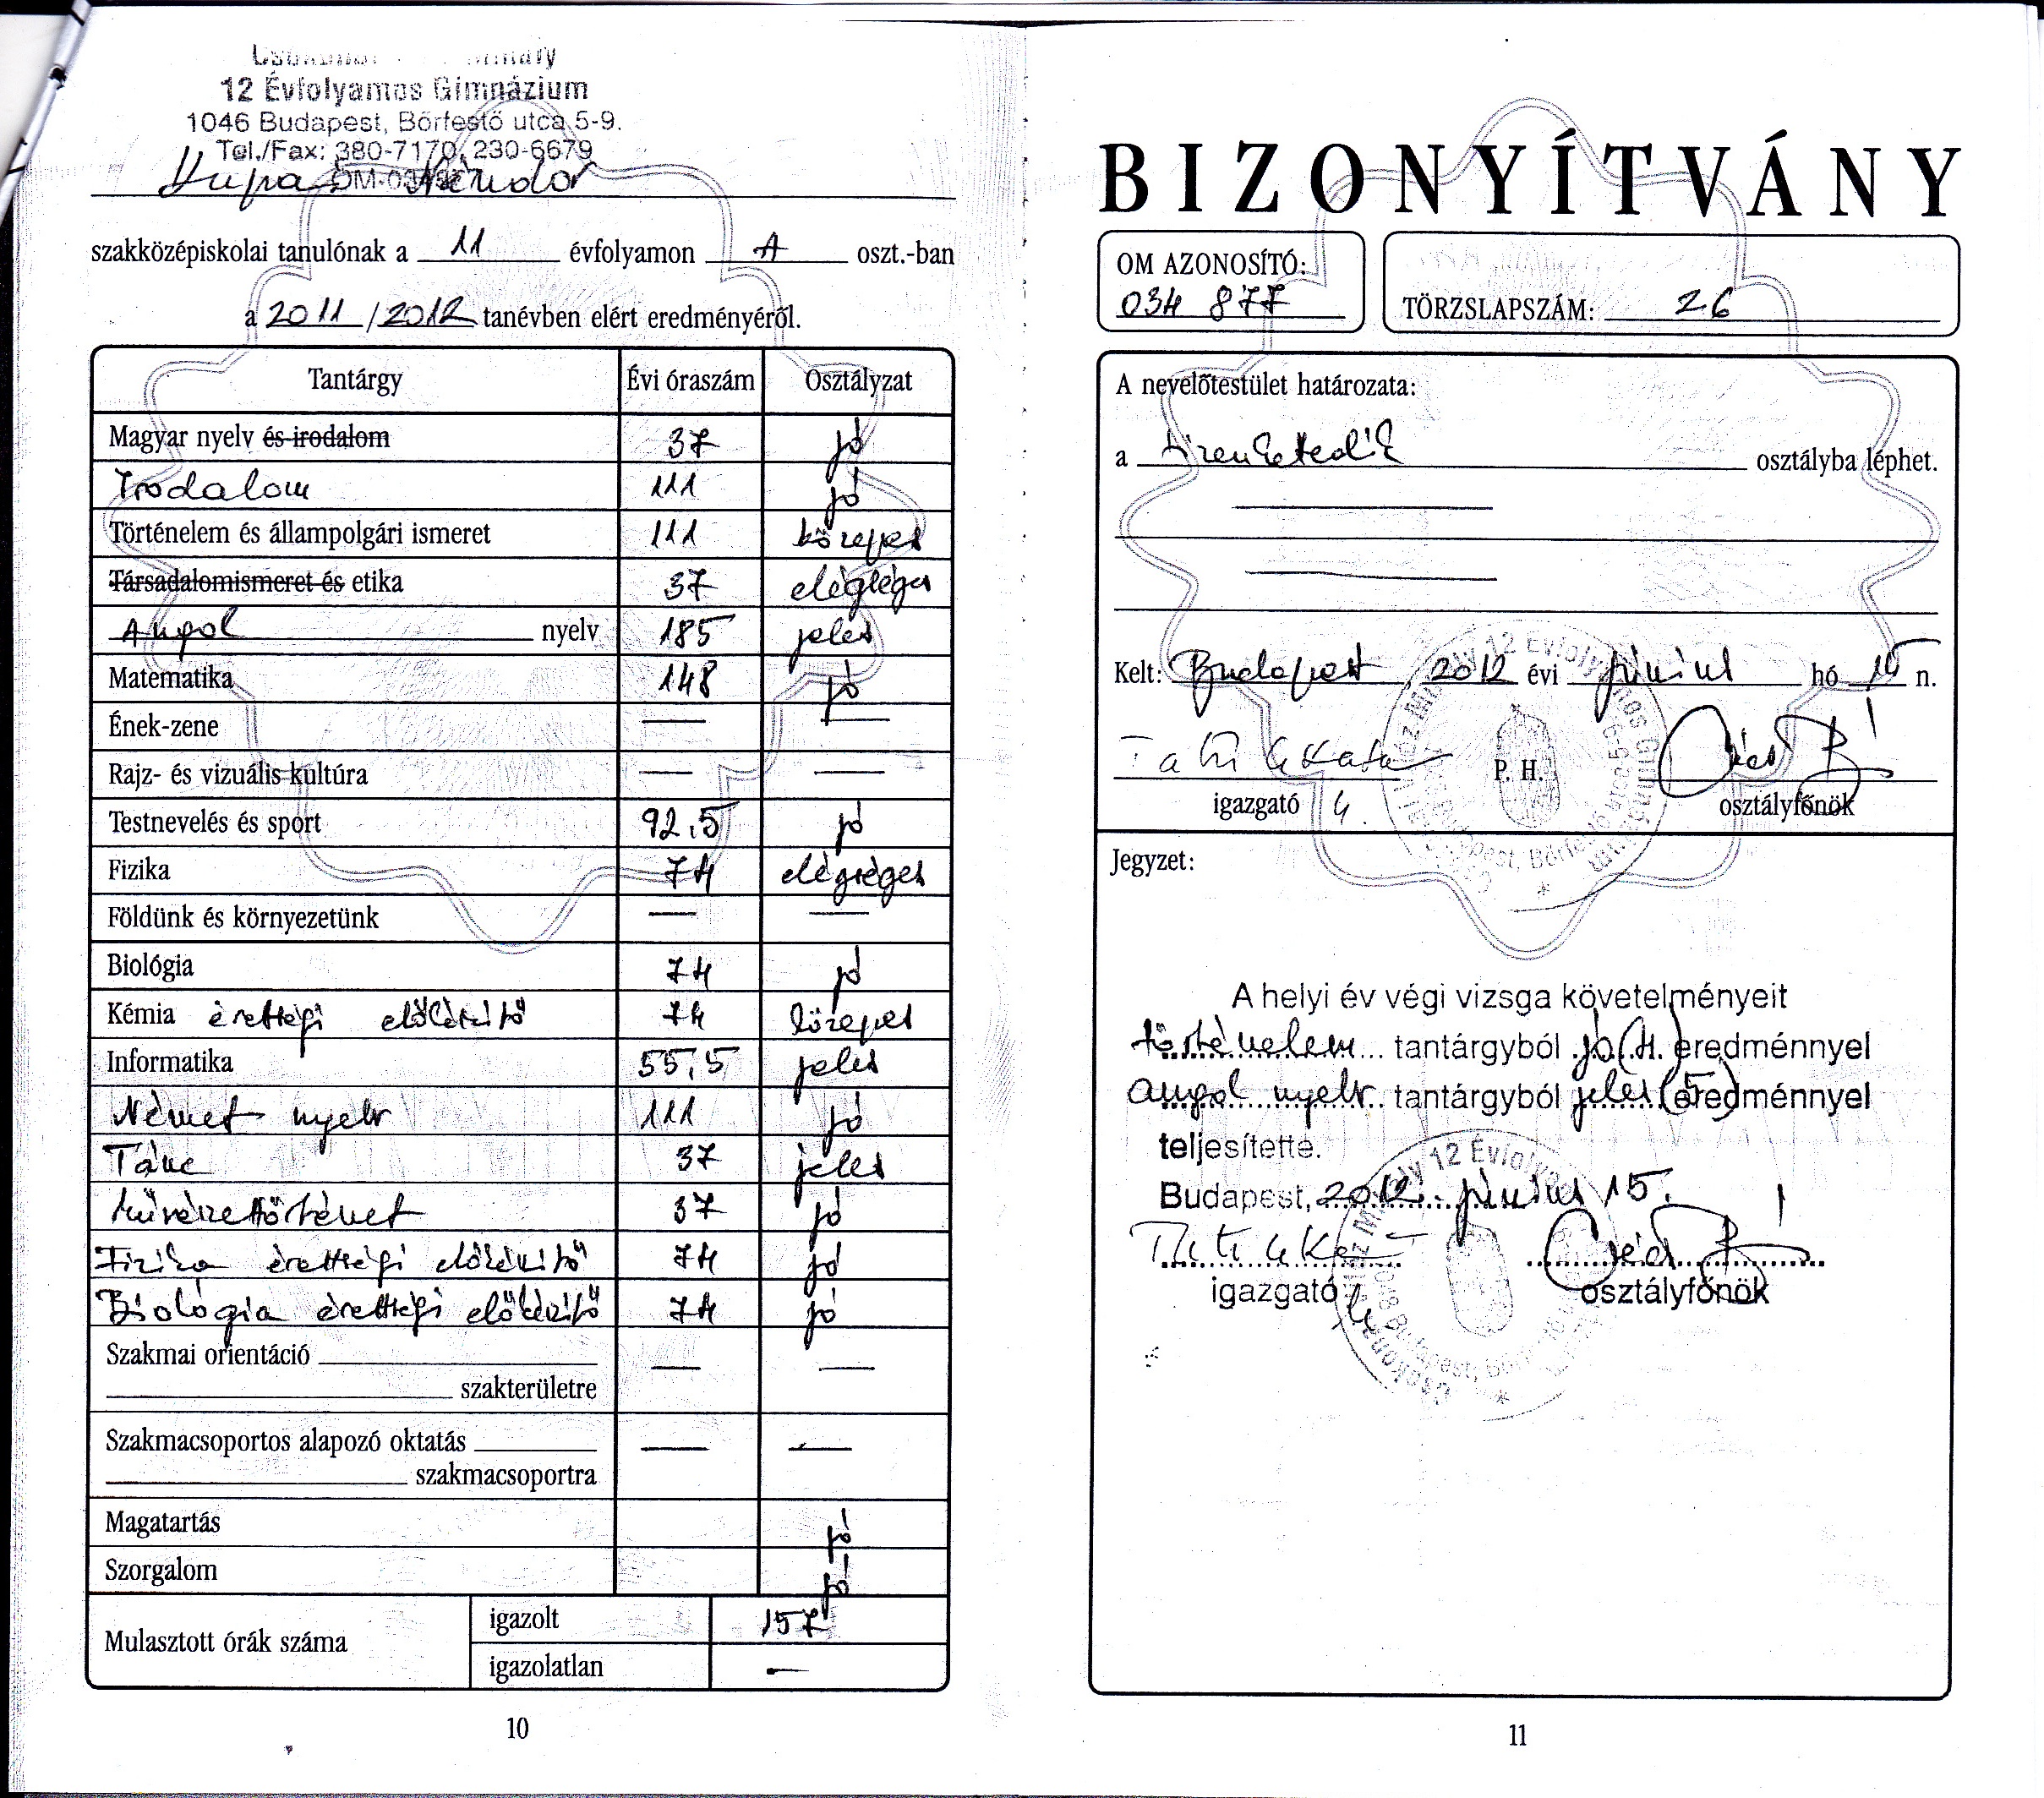 12 Évfolyamos Gimnázium
1046 Budapest, Bőrfestő utca 5-9.
Tel./Fax: 380-7170, 230-6679
Kupás Nándor
szakközépiskolai tanulónak a 11 évfolyamon A oszt.-ban
a 2011/2012 tanévben elért eredményéről.
Tantárgy Évi óraszám Osztályzat
Magyar nyelv és irodalom 37 jó
Irodalom 111 jó
Történelem és állampolgári ismeret 111 közepes
Társadalomismeret és etika 37 elégséges
Angol nyelv 185 jeles
Matematika 148 jó
Ének-zene — —
Rajz- és vizuális kultúra — —
Testnevelés és sport 92,5 jó
Fizika 74 elégséges
Földünk és környezetünk — —
Biológia 74 jó
Kémia érettségi előkészítő 74 közepes
Informatika 55,5 jeles
Német nyelv 111 jó
Tánc 37 jeles
Művészettörténet 37 jó
Fizika érettségi előkészítő 74 jó
Biológia érettségi előkészítő 74 jó
Szakmai orientáció — —
szakterületre
Szakmacsoportos alapozó oktatás — —
szakmacsoportra
Magatartás jó
Szorgalom jó
Mulasztott órák száma
igazolt 157
igazolatlan —
10
BIZONYÍTVÁNY
OM AZONOSÍTÓ:
034 877
TÖRZSLAPSZÁM: 26
A nevelőtestület határozata:
a tizenkettedik osztályba léphet.
Kelt: Budapest 2012 évi június hó 15 n.
P. H.
igazgató osztályfőnök
Jegyzet:
A helyi év végi vizsga követelményeit
történelem tantárgyból jó (4) eredménnyel
angol nyelv tantárgyból jeles (5) eredménnyel
teljesítette.
Budapest, 2012. június 15.
igazgató osztályfőnök
11